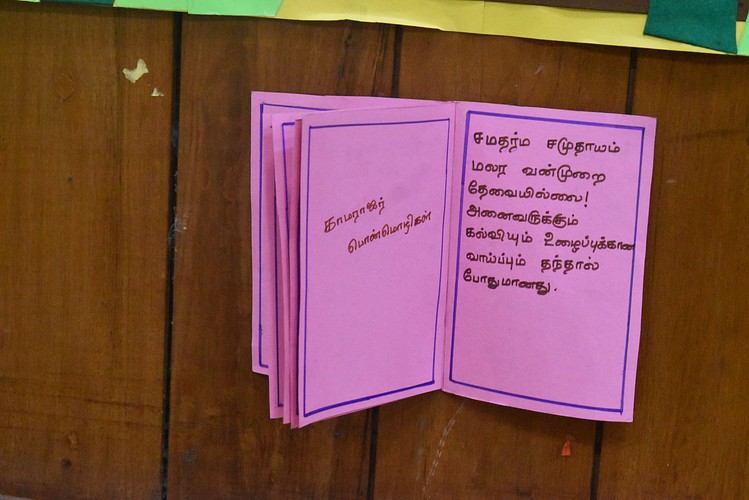 காமராஜர்
பொன்மொழிகள்
சமதர்ம சமுதாயம்
மலர வன்முறை
தேவையில்லை!
அனைவருக்கும்
கல்வியும் உழைப்புக்கான
வாய்ப்பும் தந்தால்
போதுமானது.